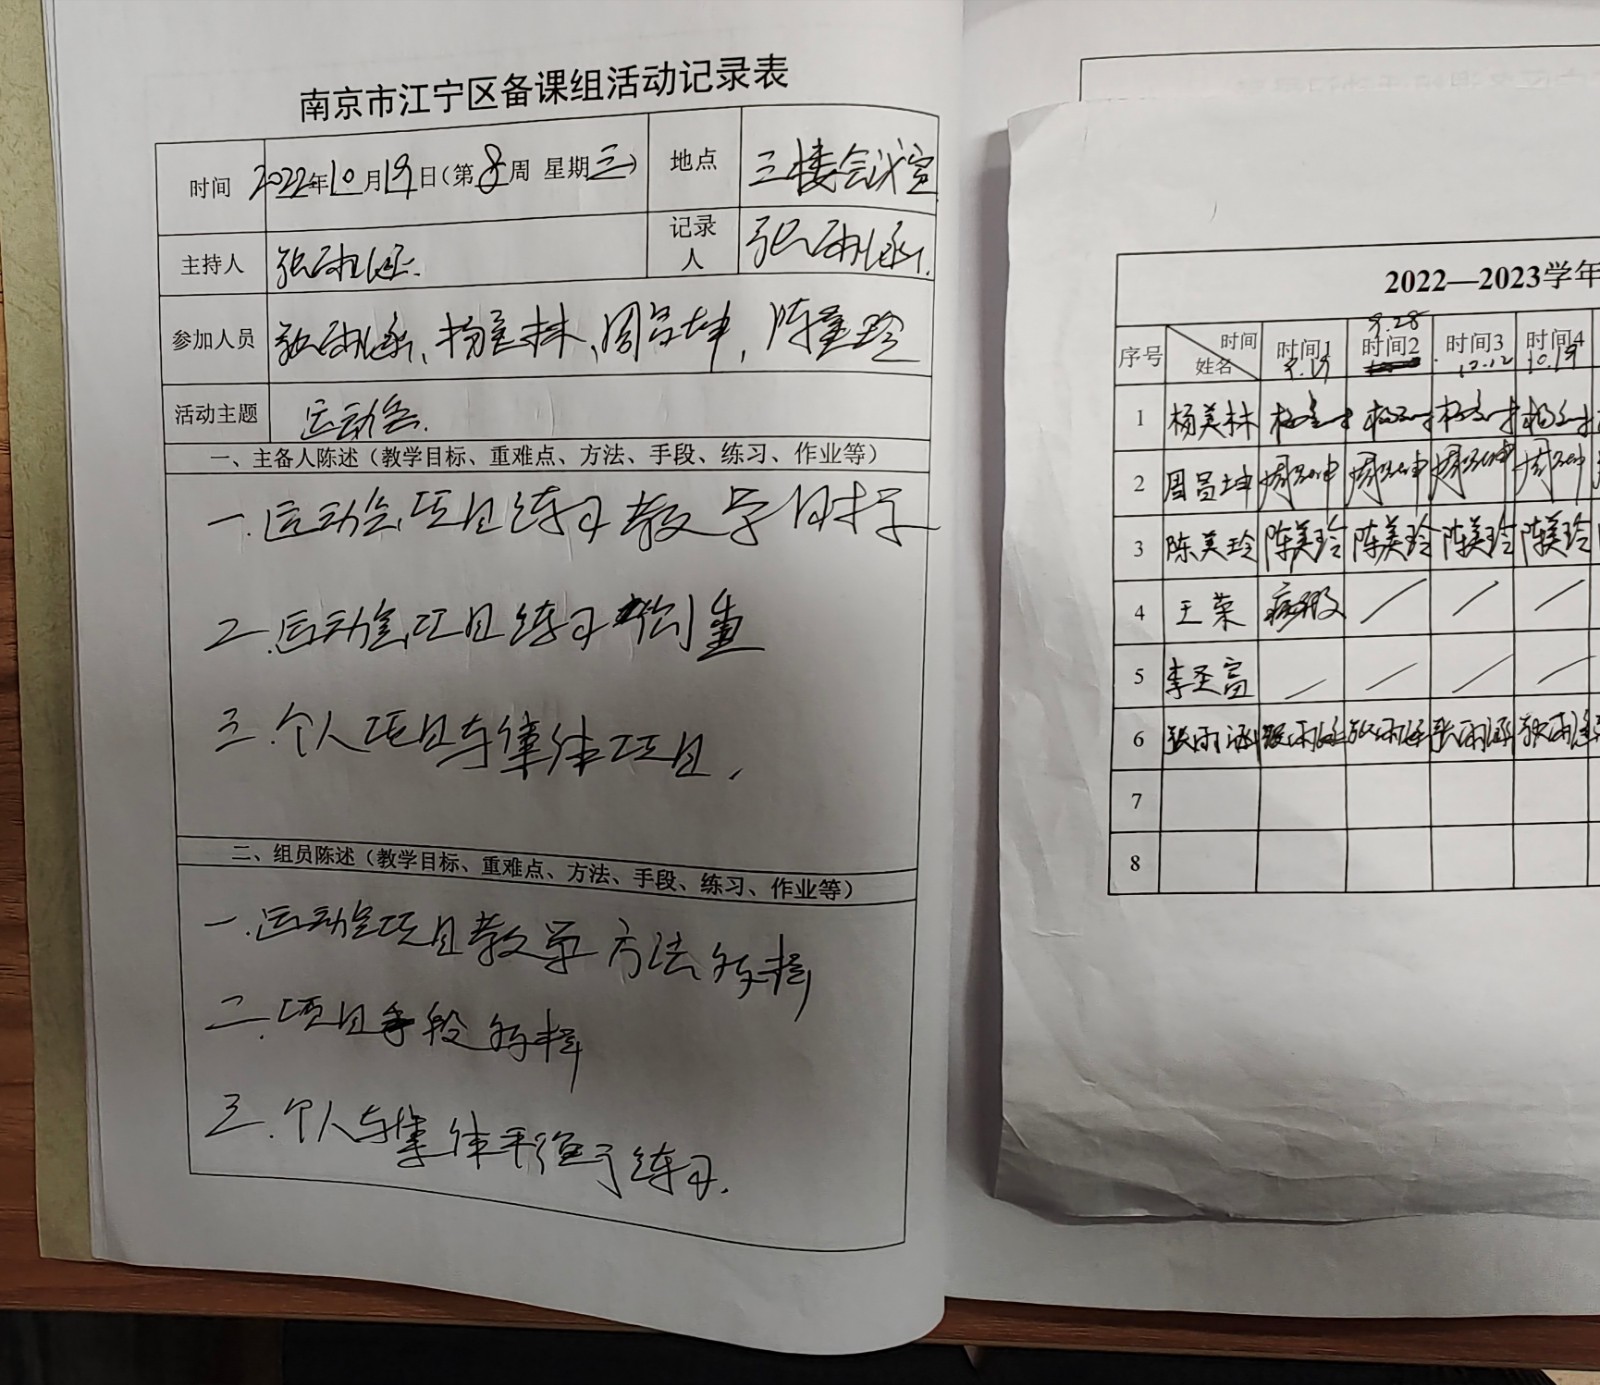 南京市江宁区备课组活动记录表
时间 2022年10月19日(第8周 星期三) 地点 三楼会议室
主持人 张雨涵. 记录人 张雨涵.
参加人员 张雨涵、杨美林、周昌坤、陈美玲
活动主题 运动会.
一、主备人陈述（教学目标、重难点、方法、手段、练习、作业等）
一.运动会项目练习教学目标
二.运动会项目练习侧重
三.个人项目与集体项目.
二、组员陈述（教学目标、重难点、方法、手段、练习、作业等）
一.运动会项目教学方法选择
二.项目手段选择
三.个人与集体 练习.
2022—2023学年
9.28
序号 时间 姓名 时间1 时间2 时间3 时间4
9.19 10.12 10.19
1 杨美林
2 周昌坤 周昌坤 周昌坤 周昌坤 周昌坤
3 陈美玲 陈美玲 陈美玲 陈美玲 陈美玲
4 王荣 病假
5 李圣富
6 张雨涵 张雨涵 张雨涵 张雨涵 张雨涵
7
8